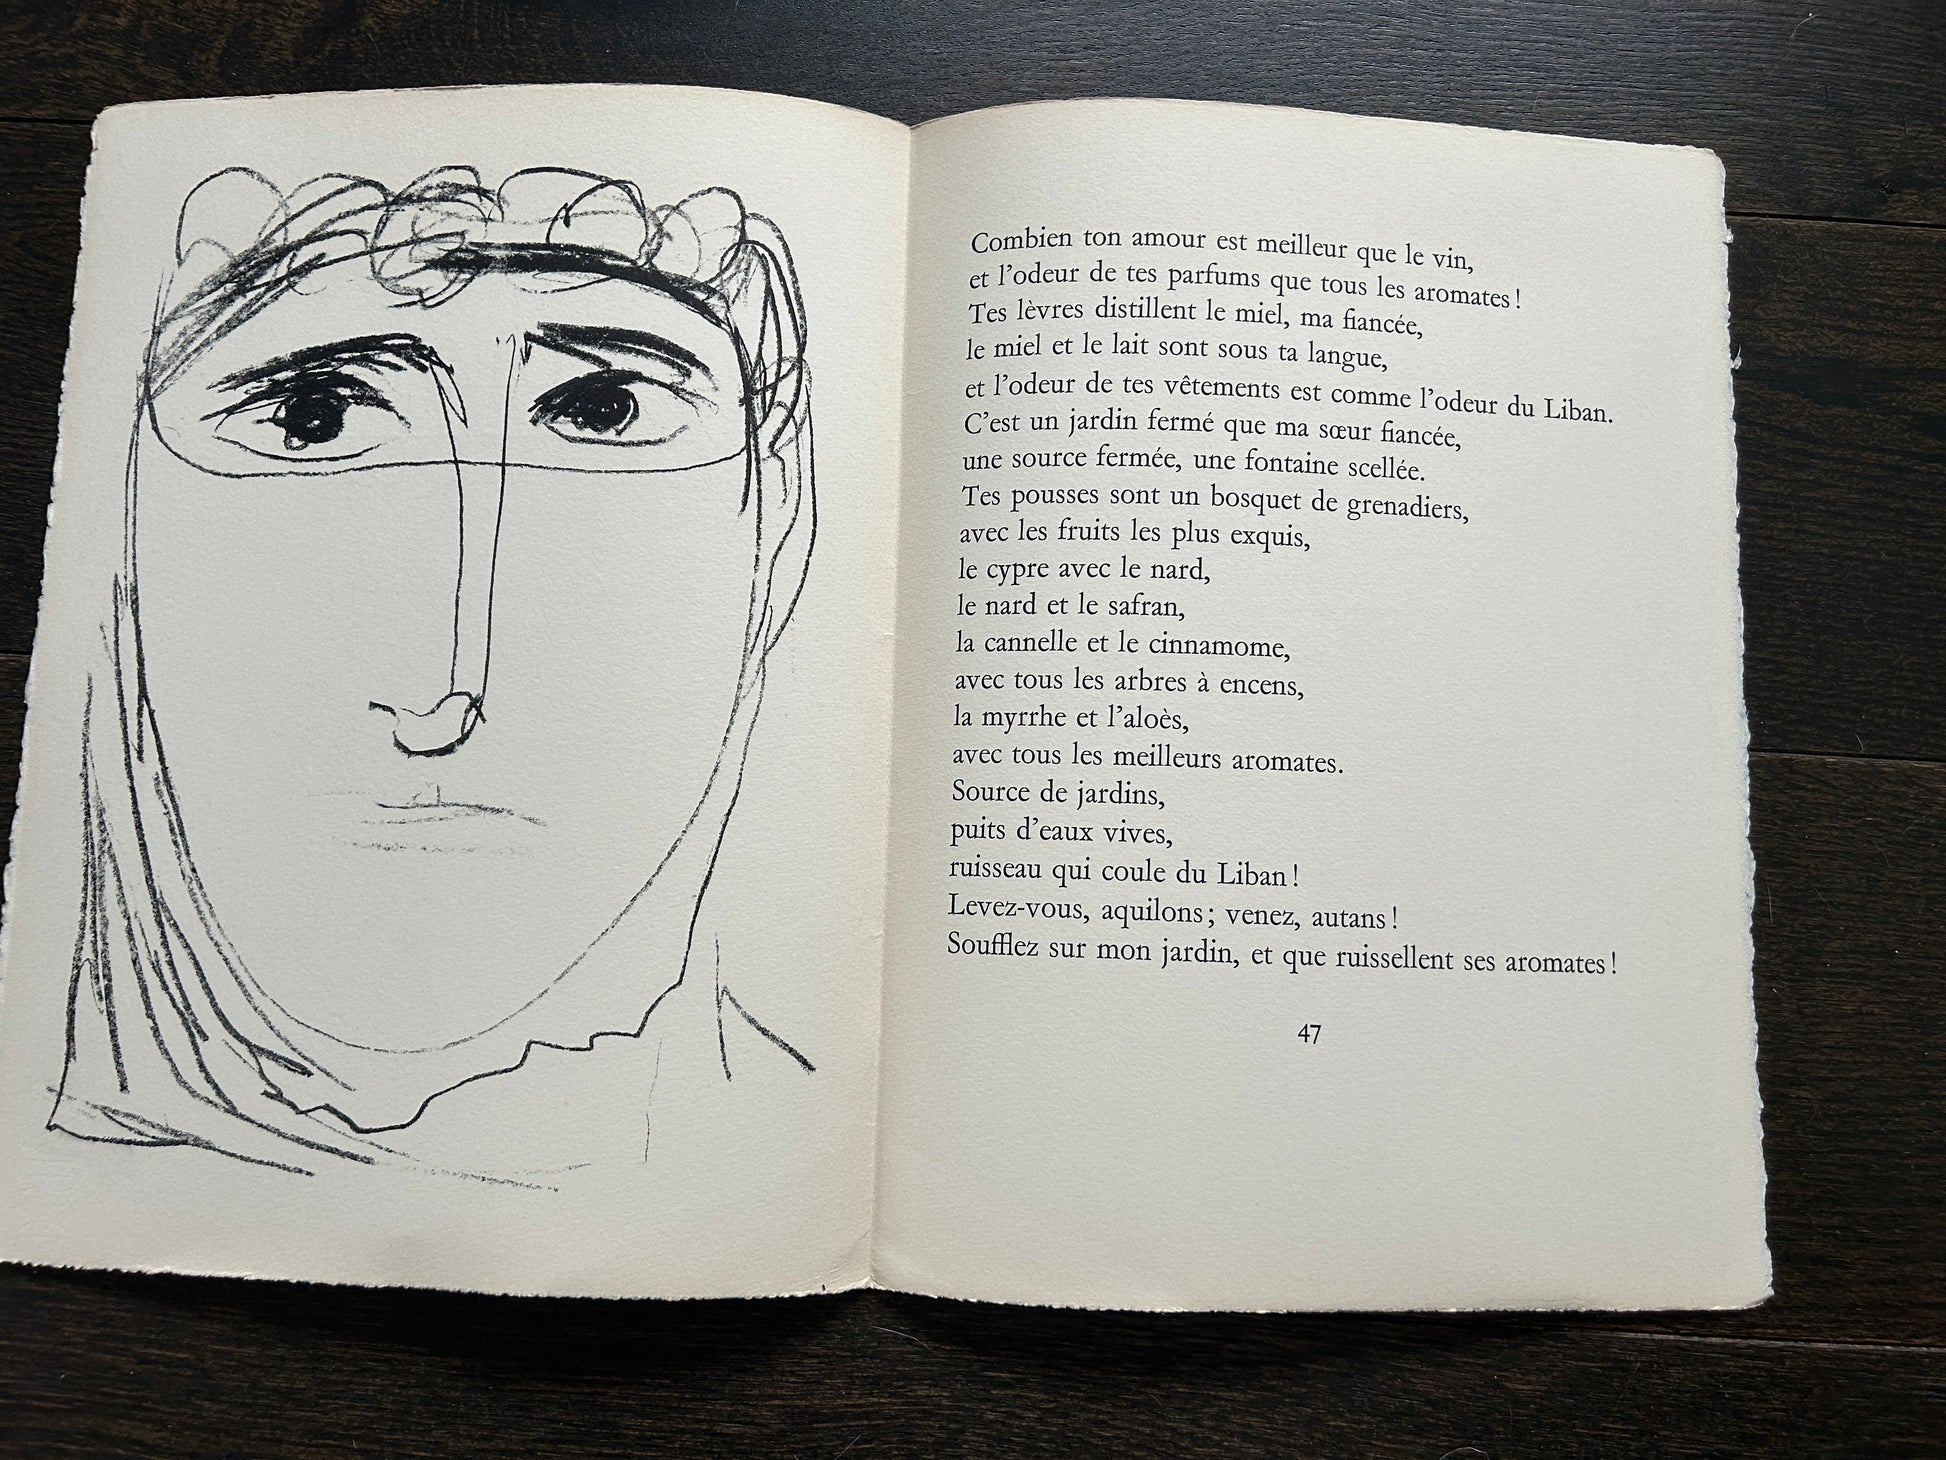 Combien ton amour est meilleur que le vin,
et l’odeur de tes parfums que tous les aromates !
Tes lèvres distillent le miel, ma fiancée,
le miel et le lait sont sous ta langue,
et l’odeur de tes vêtements est comme l’odeur du Liban.
C’est un jardin fermé que ma sœur fiancée,
une source fermée, une fontaine scellée.
Tes pousses sont un bosquet de grenadiers,
avec les fruits les plus exquis,
le cypre avec le nard,
le nard et le safran,
la cannelle et le cinnamome,
avec tous les arbres à encens,
la myrrhe et l’aloès,
avec tous les meilleurs aromates.
Source de jardins,
puits d’eaux vives,
ruisseau qui coule du Liban !
Levez-vous, aquilons ; venez, autans !
Soufflez sur mon jardin, et que ruissellent ses aromates !
47